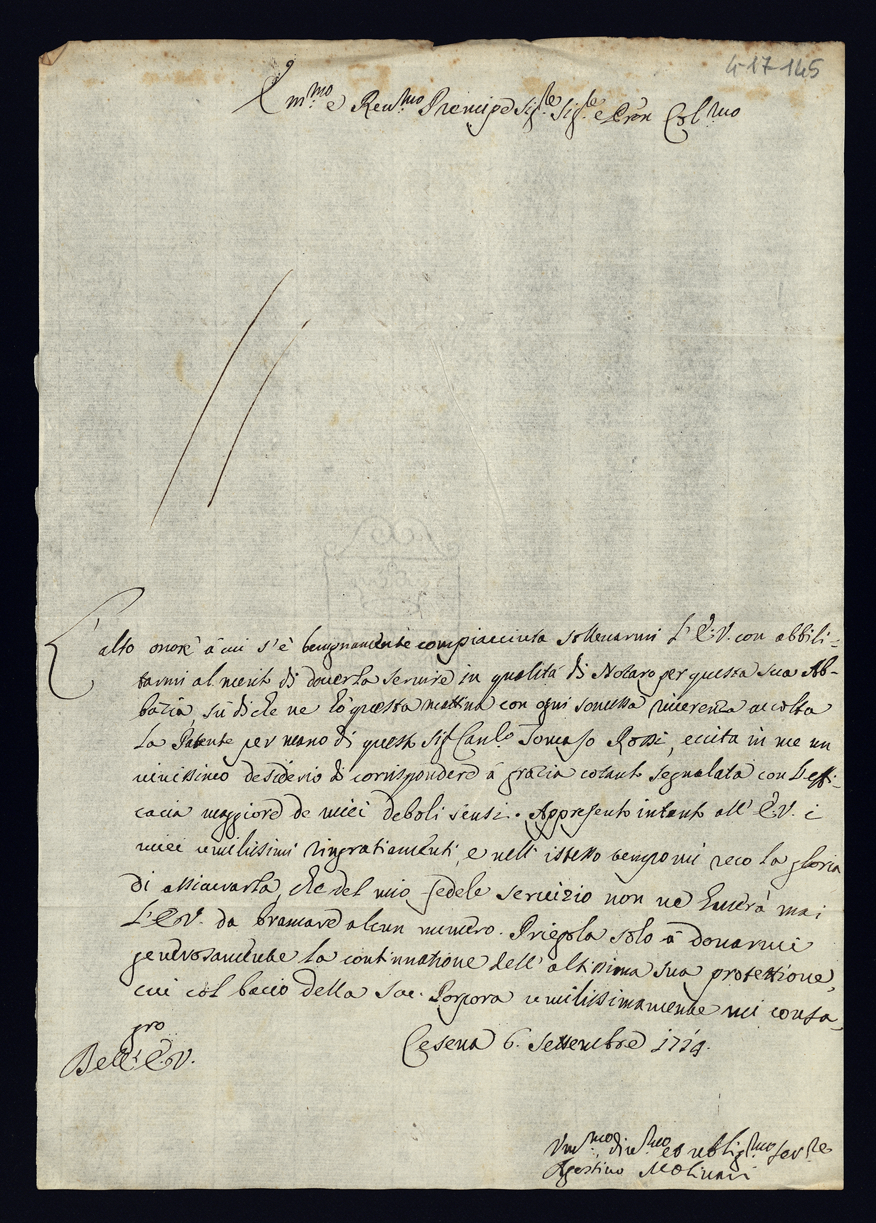 4-17-145
Em.mo e Reu.mo Prencipe Sig.re Sig.re e Pron Col.mo
L'alto onore à cui s'è benignamente compiacciuta solleuarmi L'E.V. con abbili-
tarmi al merit di douerla seruire in qualità di Notaro per questa sua Ab-
bazia, sù di che ne hò questa mattina con ogni somessa riuerenza accolta
La Patente per mano di questo Sig.r Can.co Tomaso Rossi, eccita in me un
viuissimo desiderio di corrispondere à grazia cotanto segnalata con L'effi-
cacia maggiore de miei deboli sensi. Appresento intanto all'E.V. i
miei umilissimi ringratiamenti, e nell'istesso tempo mi reco la gloria
di assicurarla, che del mio fedele seruizio non ne hauerà mai
L'E.V. da bramare alcun numero. Priegola solo à donarmi
generosamente la continuatione dell'altissima sua protettione,
cui col bacio della Sac. Porpora umilissimamente mi consa-
gro
Cesena 6. Settembre 1714.
Dell'E.V.
Um.mo Diu.mo ed obblig.mo Ser.re
Agostino Molinari